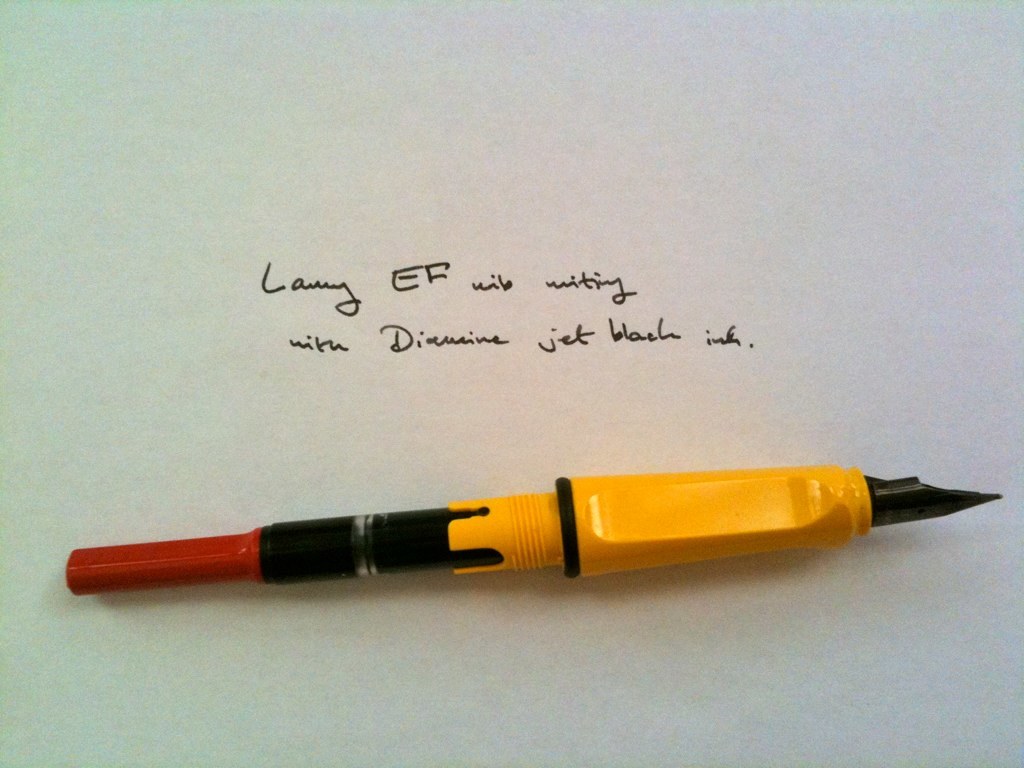 Lamy EF nib writing
with Diamine jet black ink.